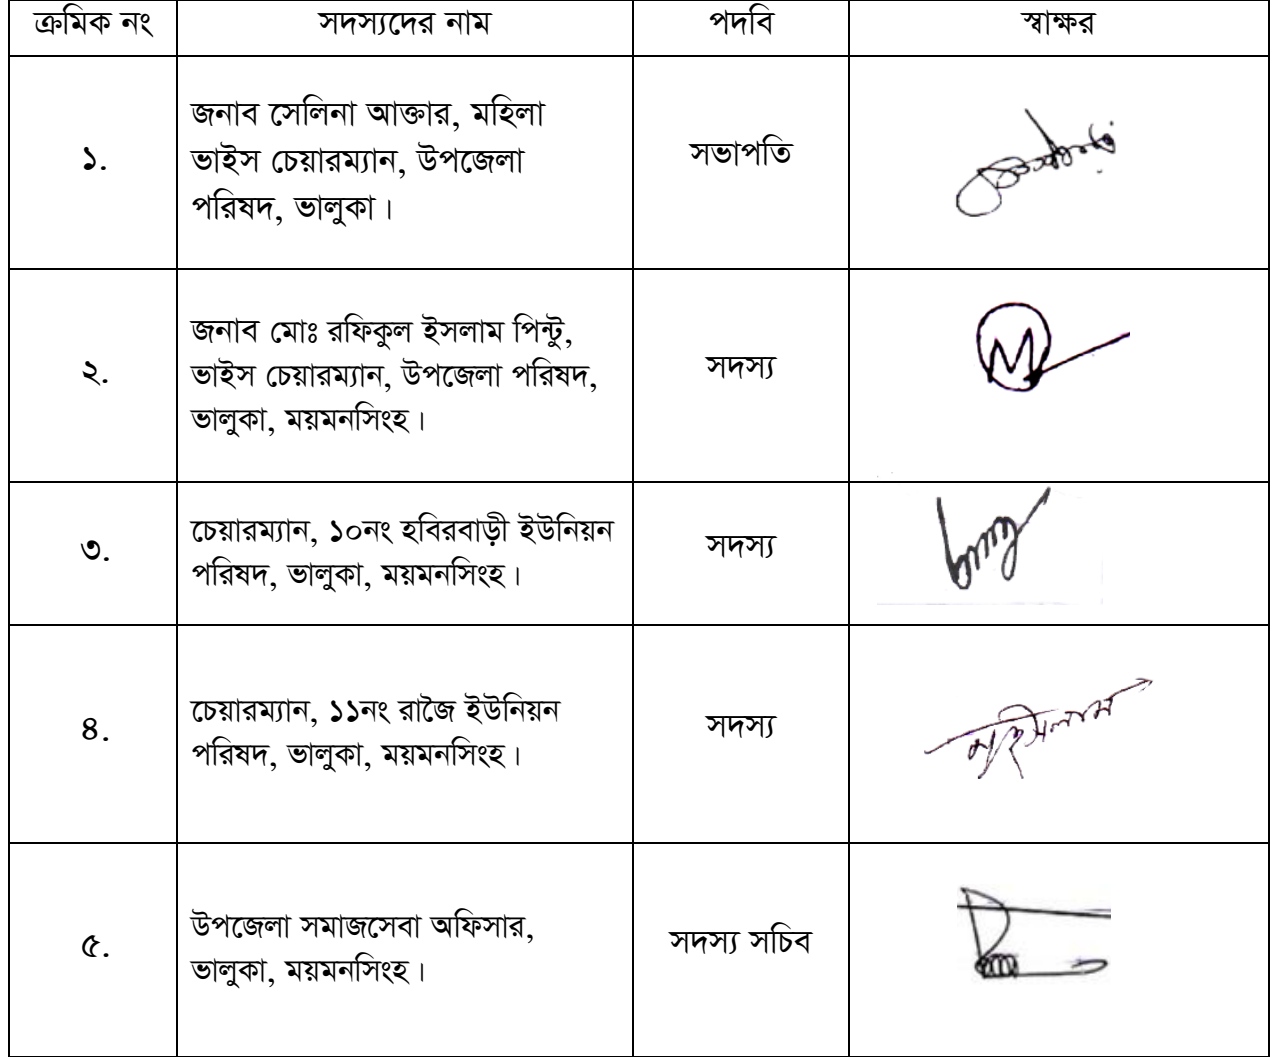 ক্রমিক নং সদস্যদের নাম পদবি স্বাক্ষর
১. জনাব সেলিনা আক্তার, মহিলা
ভাইস চেয়ারম্যান, উপজেলা
পরিষদ, ভালুকা।
সভাপতি
২. জনাব মোঃ রফিকুল ইসলাম পিন্টু,
ভাইস চেয়ারম্যান, উপজেলা পরিষদ,
ভালুকা, ময়মনসিংহ।
সদস্য
৩. চেয়ারম্যান, ১০নং হবিরবাড়ী ইউনিয়ন
পরিষদ, ভালুকা, ময়মনসিংহ।
সদস্য
৪. চেয়ারম্যান, ১১নং রাজৈ ইউনিয়ন
পরিষদ, ভালুকা, ময়মনসিংহ।
সদস্য
৫. উপজেলা সমাজসেবা অফিসার,
ভালুকা, ময়মনসিংহ।
সদস্য সচিব